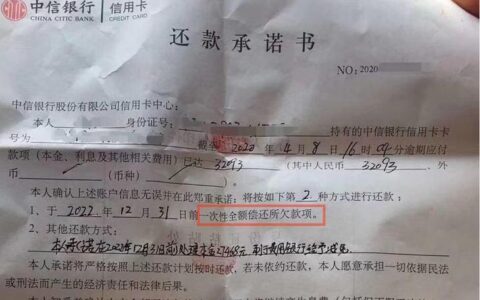 中信银行 信用卡
CHINA CITIC BANK CREDIT CARD
还款承诺书
NO:2020
中信银行股份有限公司信用卡中心:
本人 身份证号: 持有的中信银行信用卡
号为 截至2020年4月8日16时09分逾期应付
款项(本金、利息及其他相关费用)已达32093(其中人民币32093、外
币(币种)
本人确认上述账户信息无误并在此郑重承诺:将按如下第2种方式进行还款:
1、于2022年12月31日前一次性全额偿还所欠款项。
2、其他还款方式:
本人承诺在2022年12月31日前处理本金27468元
本人承诺将严格按照上述还款计划按时还款,若未依约还款,本人愿意承担一切依据民法
或刑法而产生的经济责任和法律后果。